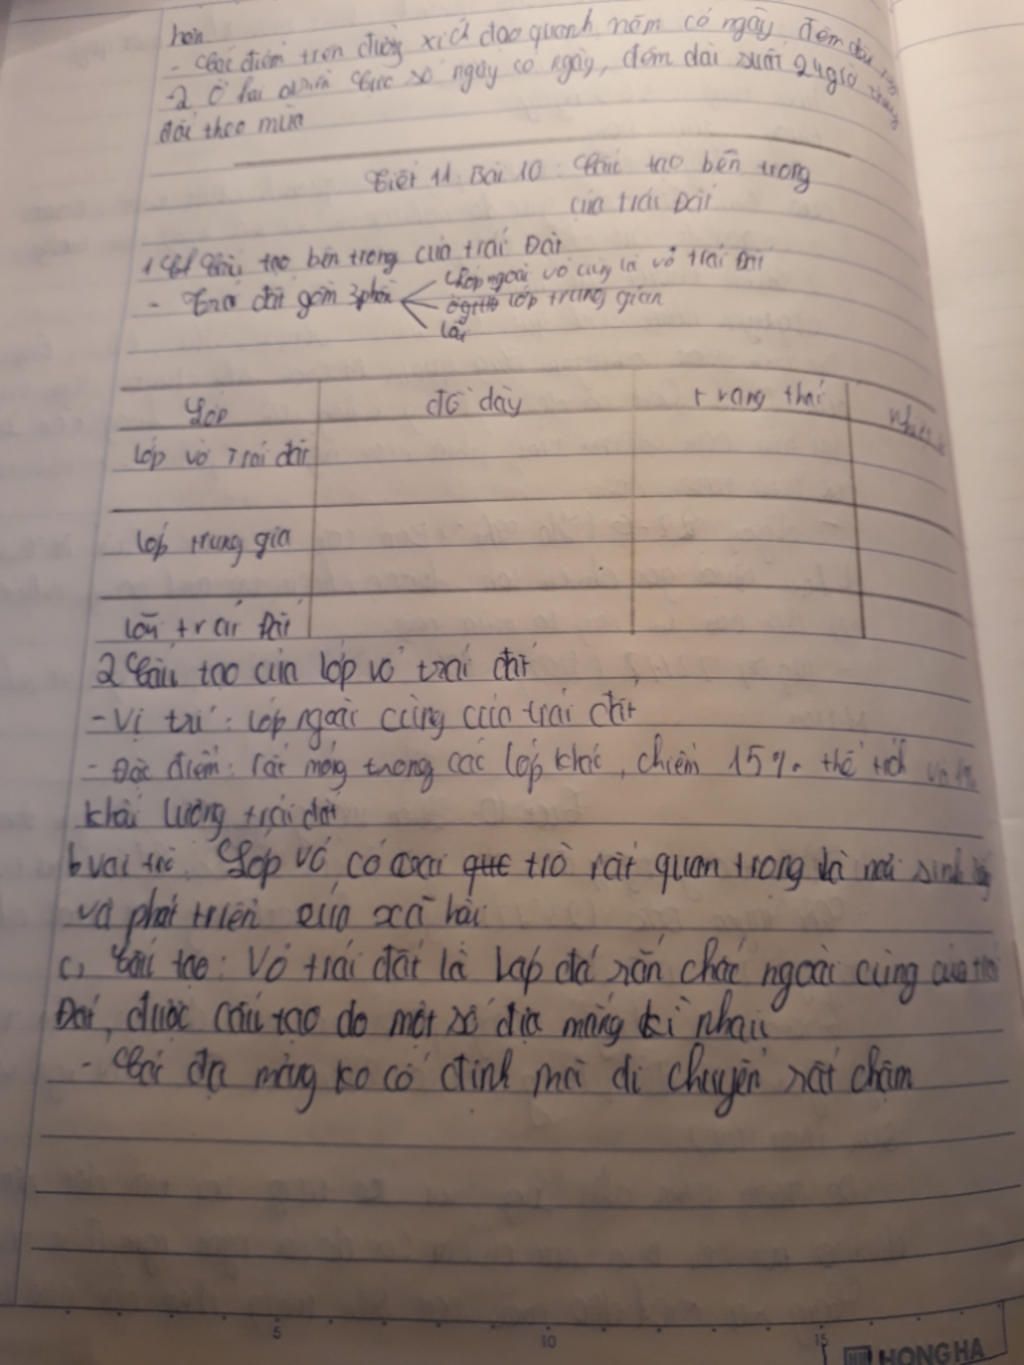 hơn
- Các điểm trên đường xích đạo quanh năm có ngày đêm dài
-2 Ở hai miền Cực số ngày có ngày, đêm dài suốt 24 giờ
đổi theo mùa
Tiết 11 Bài 10: Cấu tạo bên trong
của trái Đất
1 Cấu tạo bên trong của trái Đất
- Trái đất gồm 3 phần
lớp ngoài vỏ cùng là vỏ trái Đất
ở giữa lớp trung gian
lõi
Lớp độ dày trạng thái
lớp vỏ Trái đất
lớp trung gia
lõi trái Đất
2 Cấu tạo của lớp vỏ trái đất
- Vị trí: lớp ngoài cùng của trái đất
- Đặc điểm: rất mỏng trong các lớp khác, chiếm 15% thể tích và
khối lượng trái đất
b vai trò. Lớp vỏ có vai trò rất quan trong là nơi sinh
và phát triển của xã hội
c, Cấu tạo: Vỏ trái đất là lớp đá rắn chắc ngoài cùng của
Đất, được cấu tạo do một số địa mảng kề nhau
- Các địa mảng ko cố định mà di chuyển rất chậm
5 10 15
HONG HA